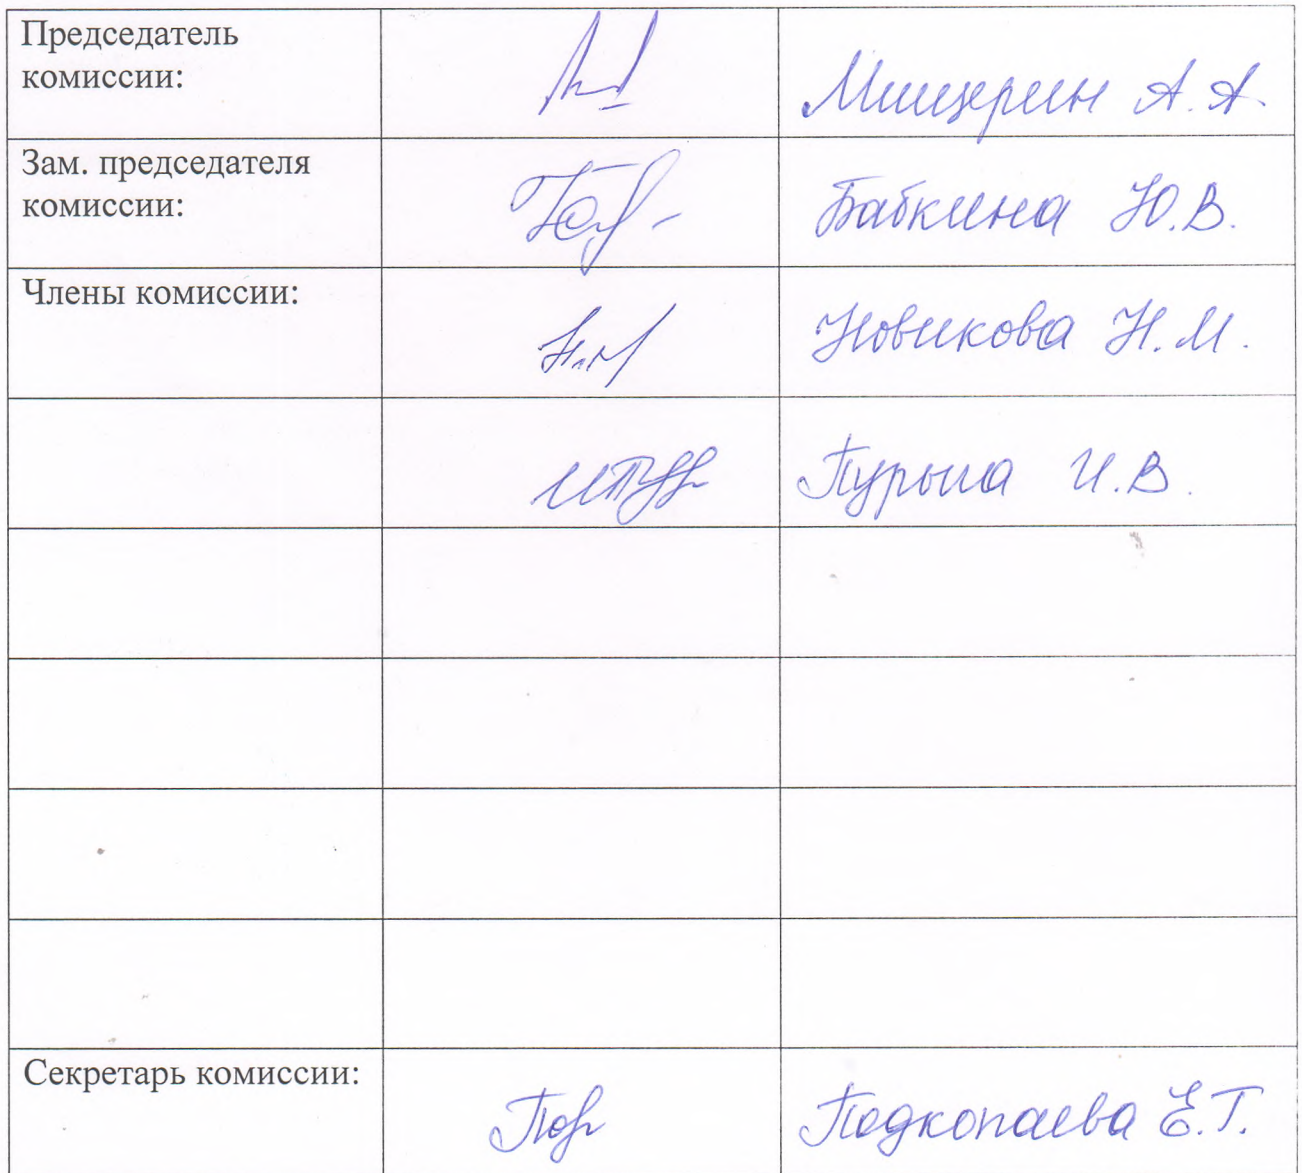 Председатель
комиссии:
Мищерин А.А.
Зам. председателя
комиссии:
Бабкина Ю.В.
Члены комиссии:
Новикова Н.М.
И.В.
Секретарь комиссии:
Подкопаева Е.Г.